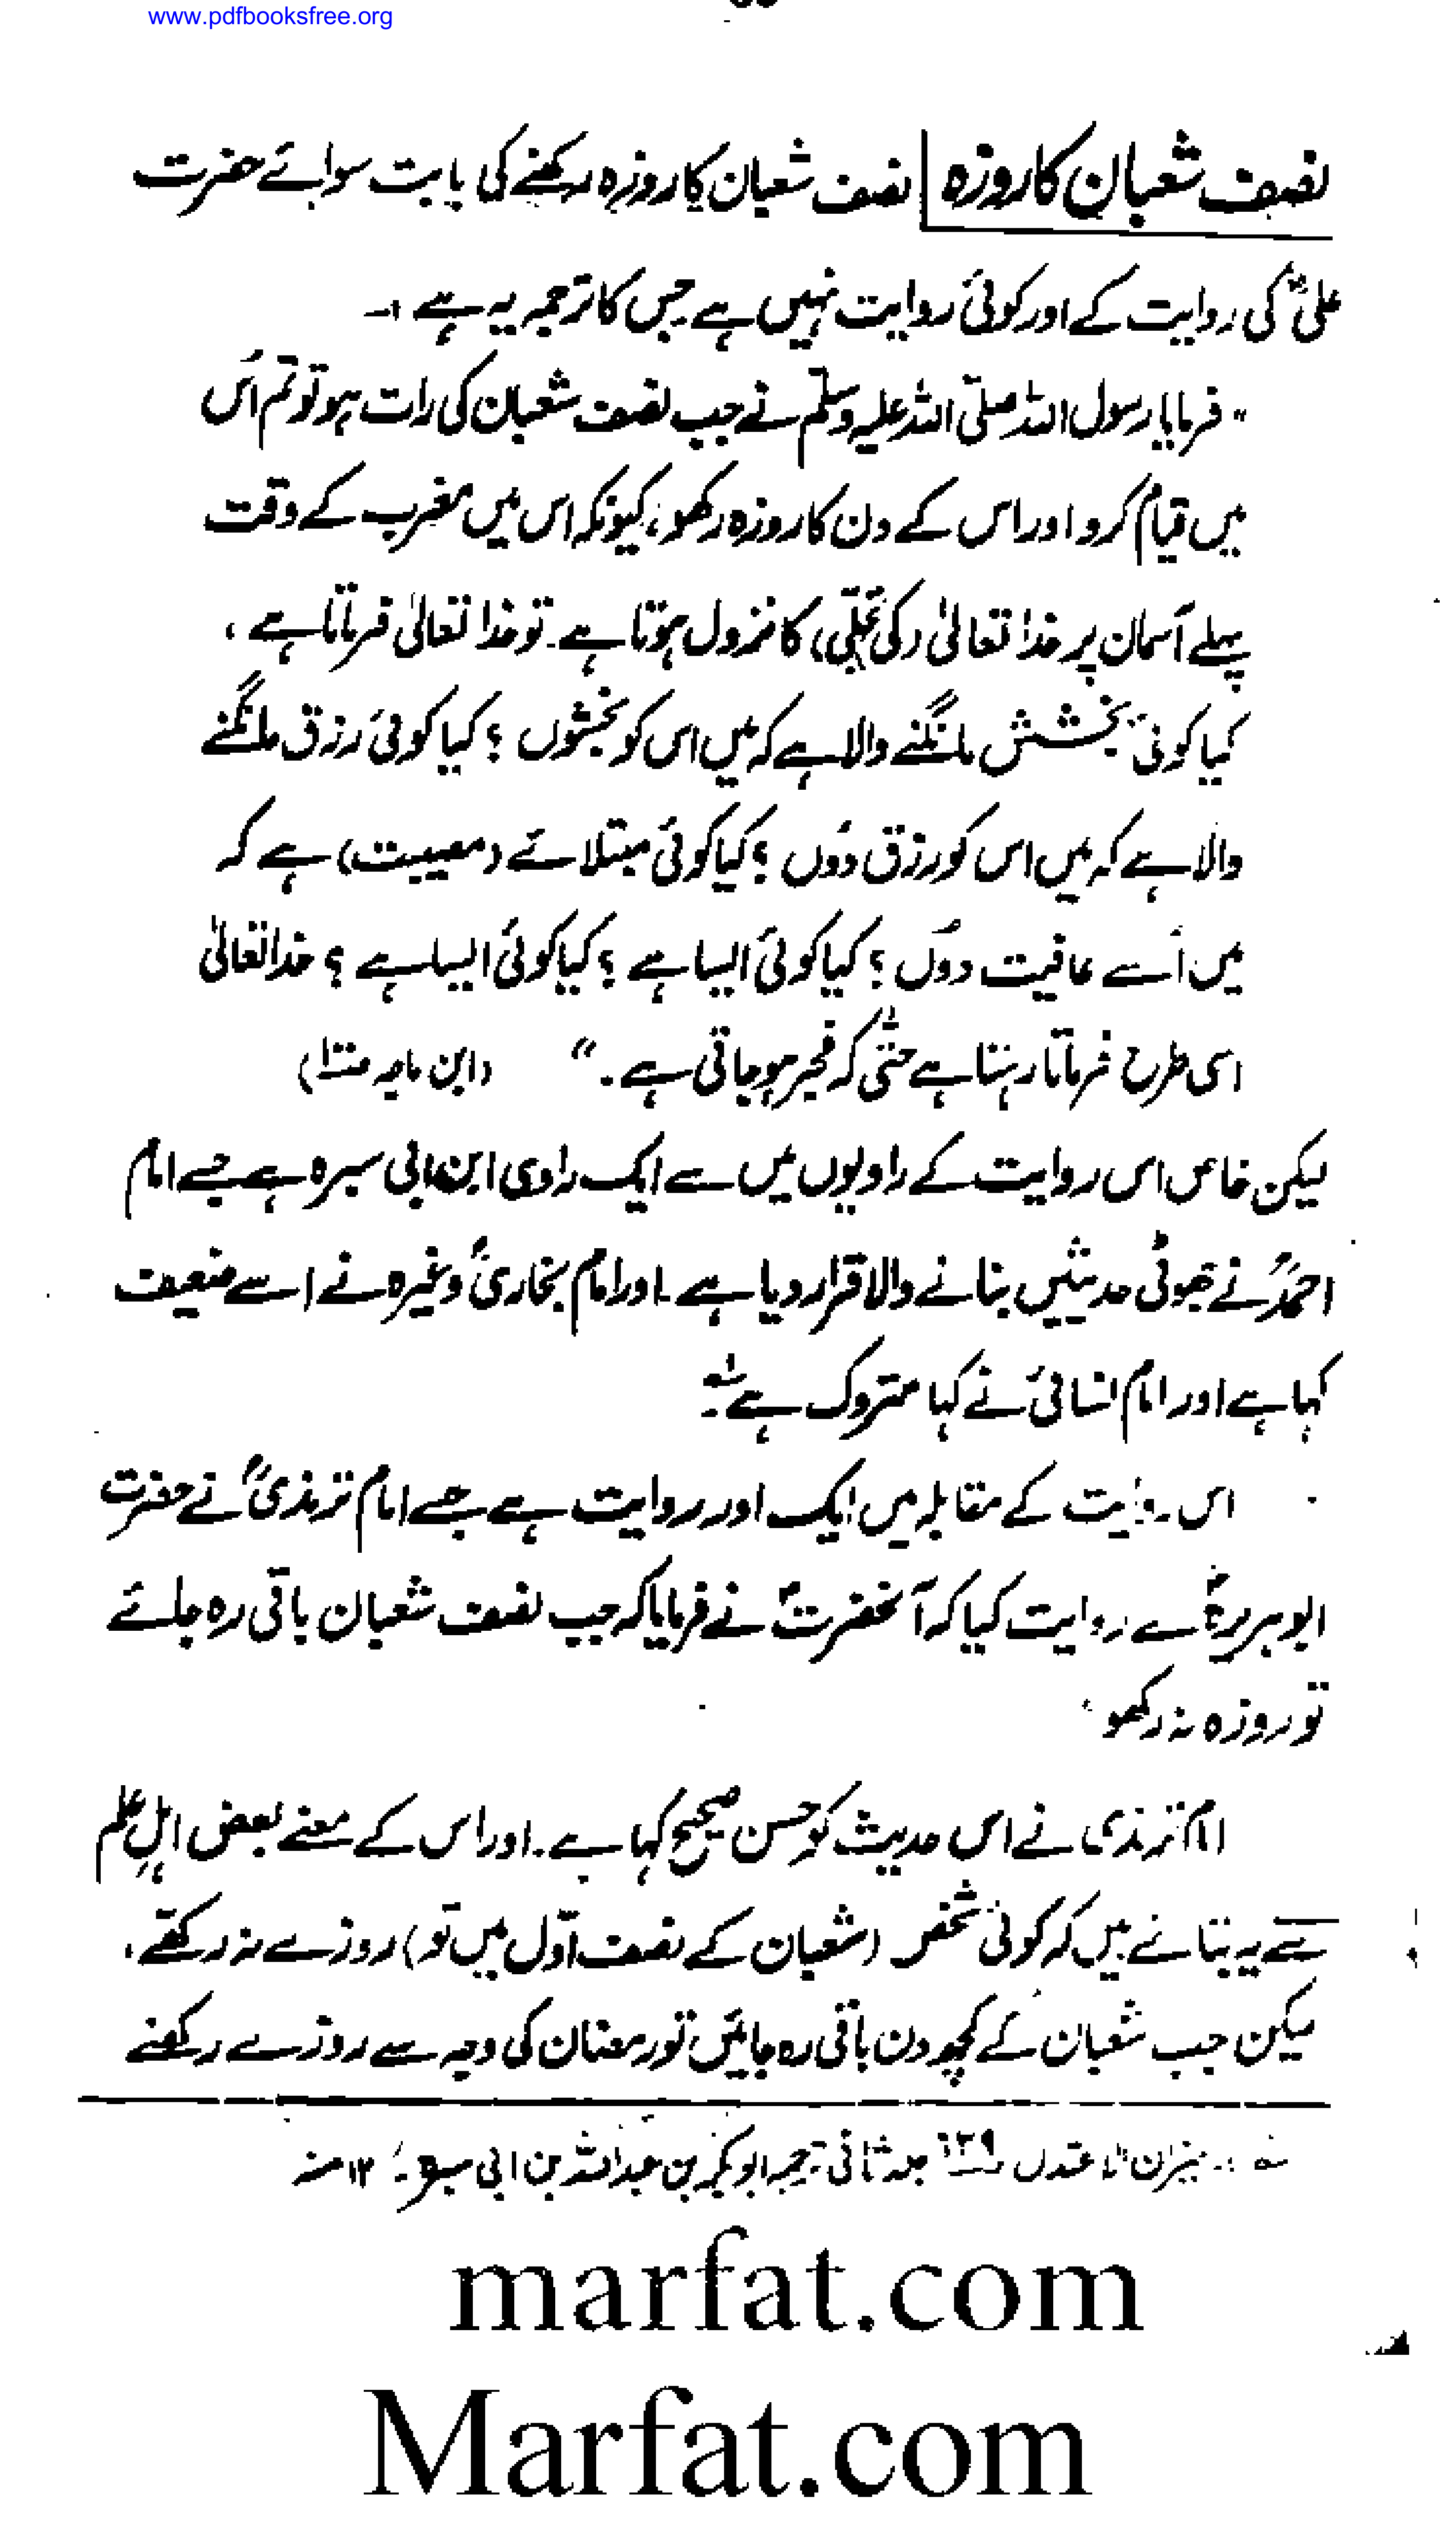 www.pdfbooksfree.org
نصف شعبان کا روزہ نصف شعبان کا روزہ رکھنے کی بابت سوائے حضرت
علیؓ کی روایت کے اور کوئی روایت نہیں ہے جس کا ترجمہ یہ ہے :۔
"فرمایا رسول اللہ صلّی اللہ علیہ وسلّم نے جب نصف شعبان کی رات ہو تو تم اُس
میں قیام کرو اور اس کے دن کا روزہ رکھو، کیونکہ اس میں مغرب کے وقت
پہلے آسمان پر خدا تعالیٰ (کی تجلّی) کا نزول ہوتا ہے۔ تو خدا تعالیٰ فرماتا ہے،
کیا کوئی بخشش مانگنے والا ہے کہ میں اس کو بخشوں ؟ کیا کوئی رزق مانگنے
والا ہے کہ میں اس کو رزق دُوں ؟ کیا کوئی مبتلائے (مصیبت) ہے کہ
میں اُسے عافیت دوُں ؟ کیا کوئی ایسا ہے ؟ کیا کوئی ایسا ہے ؟ خدا تعالیٰ
اسی طرح فرماتا رہتا ہے حتّٰی کہ فجر ہو جاتی ہے۔" (ابن ماجہ)
لیکن خاص اس روایت کے راویوں میں سے ایک راوی ابن ابی سبرہ ہے جسے امام
احمدؒ نے جھوٹی حدیثیں بنانے والا قرار دیا ہے۔ اور امام بخاریؒ وغیرہ نے اسے ضعیف
کہا ہے اور امام نسائیؒ نے کہا متروک ہے۔
اس روایت کے مقابلہ میں ایک اور روایت ہے جسے امام ترمذیؒ نے حضرت
ابوہریرہؓ سے روایت کیا کہ آنحضرتؐ نے فرمایا کہ جب نصف شعبان باقی رہ جائے
تو روزہ نہ رکھو
امام ترمذی نے اس حدیث کو حسن صحیح کہا ہے۔ اور اس کے معنے بعض اہلِ علم
نے یہ بتائے ہیں کہ کوئی شخص (شعبان کے نصف اوّل میں تو) روزے نہ رکھے،
لیکن جب شعبان کے کچھ دن باقی رہ جائیں تو رمضان کی وجہ سے روزے رکھنے
میزان الاعتدال جلد ثانی ترجمہ ابوبکر بن عبداللہ بن ابی سبرہ۔ ۱۲ منہ
marfat.com
Marfat.com